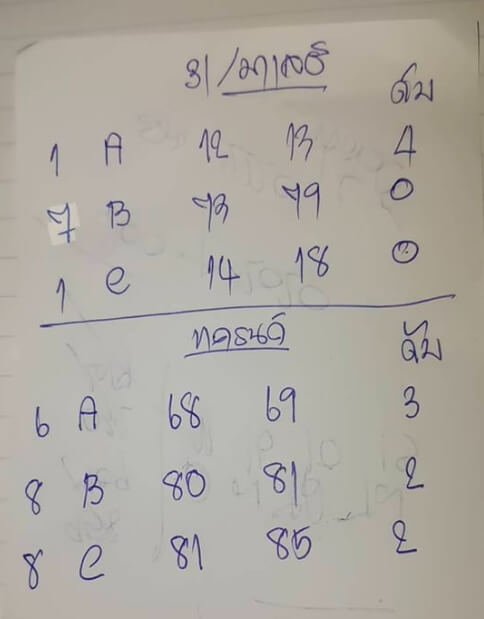 31/มาเลย์ ดับ
1 A 12 13 4
7 B 73 79 0
1 C 14 18 0
ดับ
6 A 68 69 3
8 B 80 81 2
8 C 81 85 2